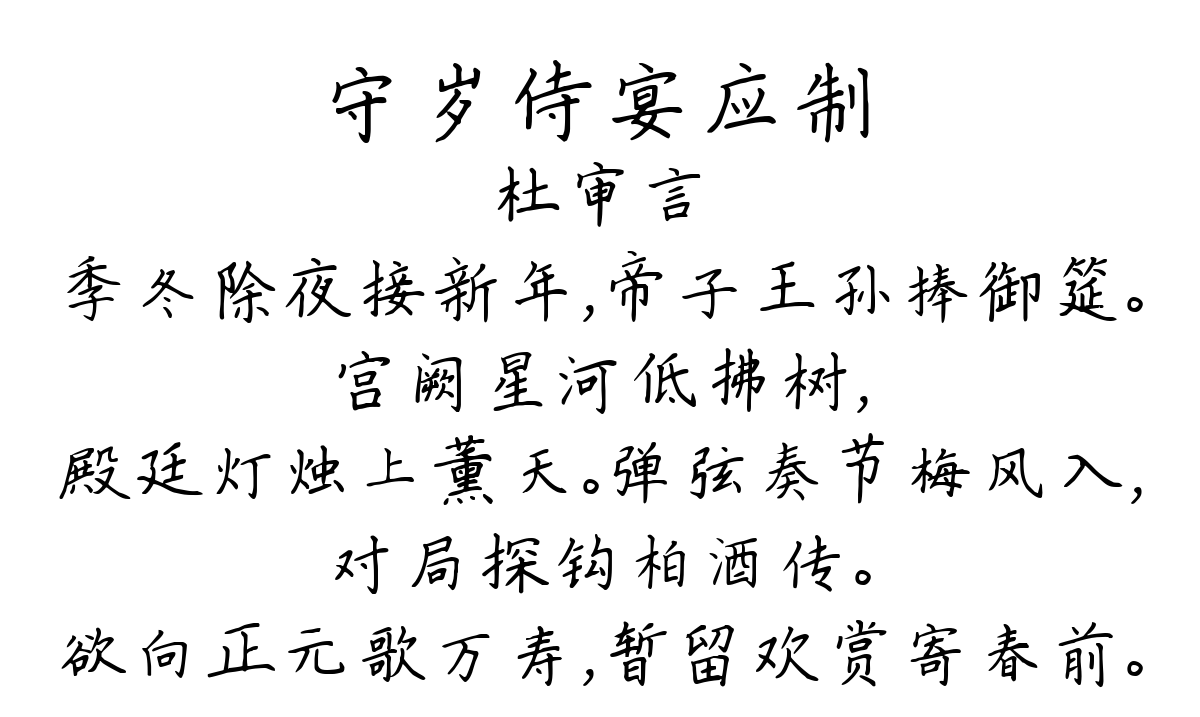 守岁侍宴应制
杜审言
季冬除夜接新年,帝子王孙捧御筵。
宫阙星河低拂树,
殿廷灯烛上薰天。弹弦奏节梅风入,
对局探钩柏酒传。
欲向正元歌万寿,暂留欢赏寄春前。